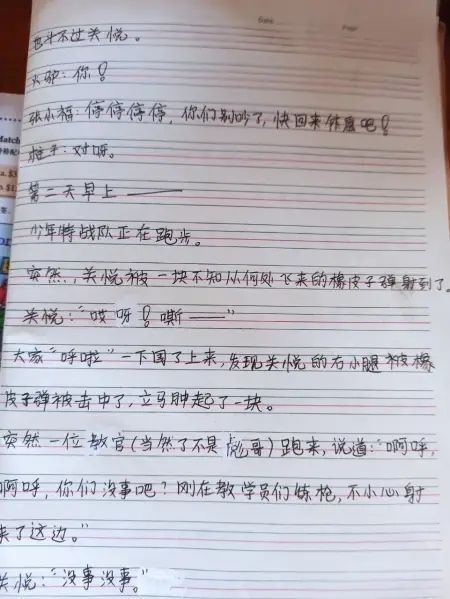 Date
Page
也斗不过关悦。
火驴：你！
张小福：停停停停，你们别吵了，快回来休息吧！
柱子：对呀。
第二天早上 ——
少年特战队正在跑步。
突然，关悦被一块不知从何处飞来的橡皮子弹射到了。
关悦：“哎呀！嘶——”
大家“呼啦”一下围了上来，发现关悦的右小腿被橡
皮子弹被击中了，立马肿起了一块。
突然一位教官（当然了不是彪哥）跑来，说道：“啊呼，
啊呼，你们没事吧？刚在教学员们练枪，不小心射
来了这边。”
关悦：“没事没事。”
Match
a. $3
a. $1